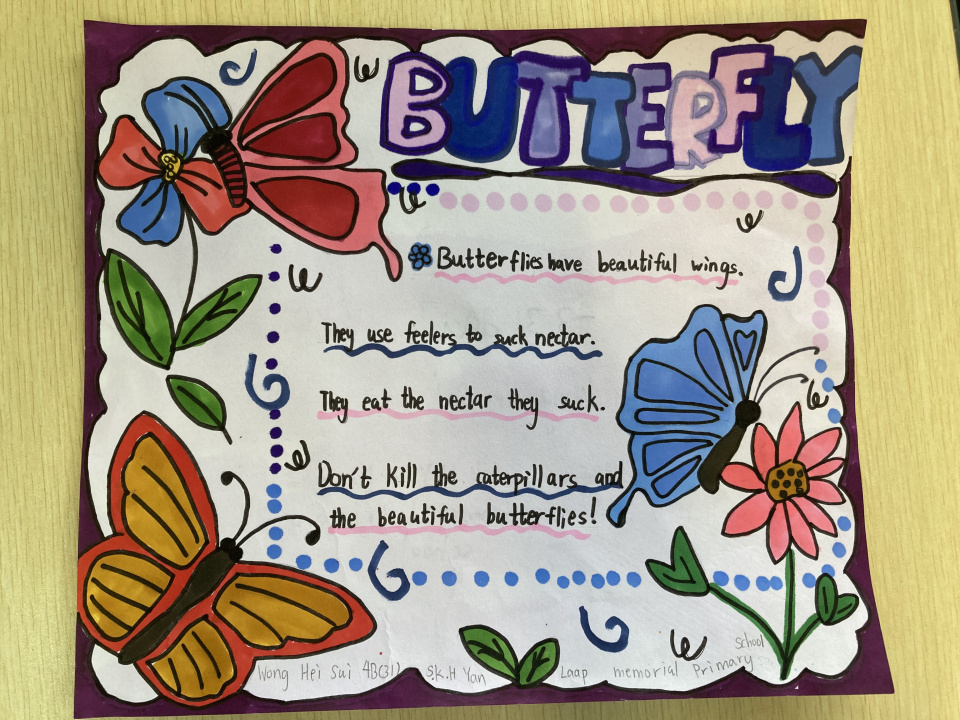 BUTTERFLY
Butterflies have beautiful wings.
They use feelers to suck nectar.
They eat the nectar they suck.
Don't kill the caterpillars and
the beautiful butterflies!
Wong Hei Sui 4B(31) S.K.H Yan Laap memorial Primary School